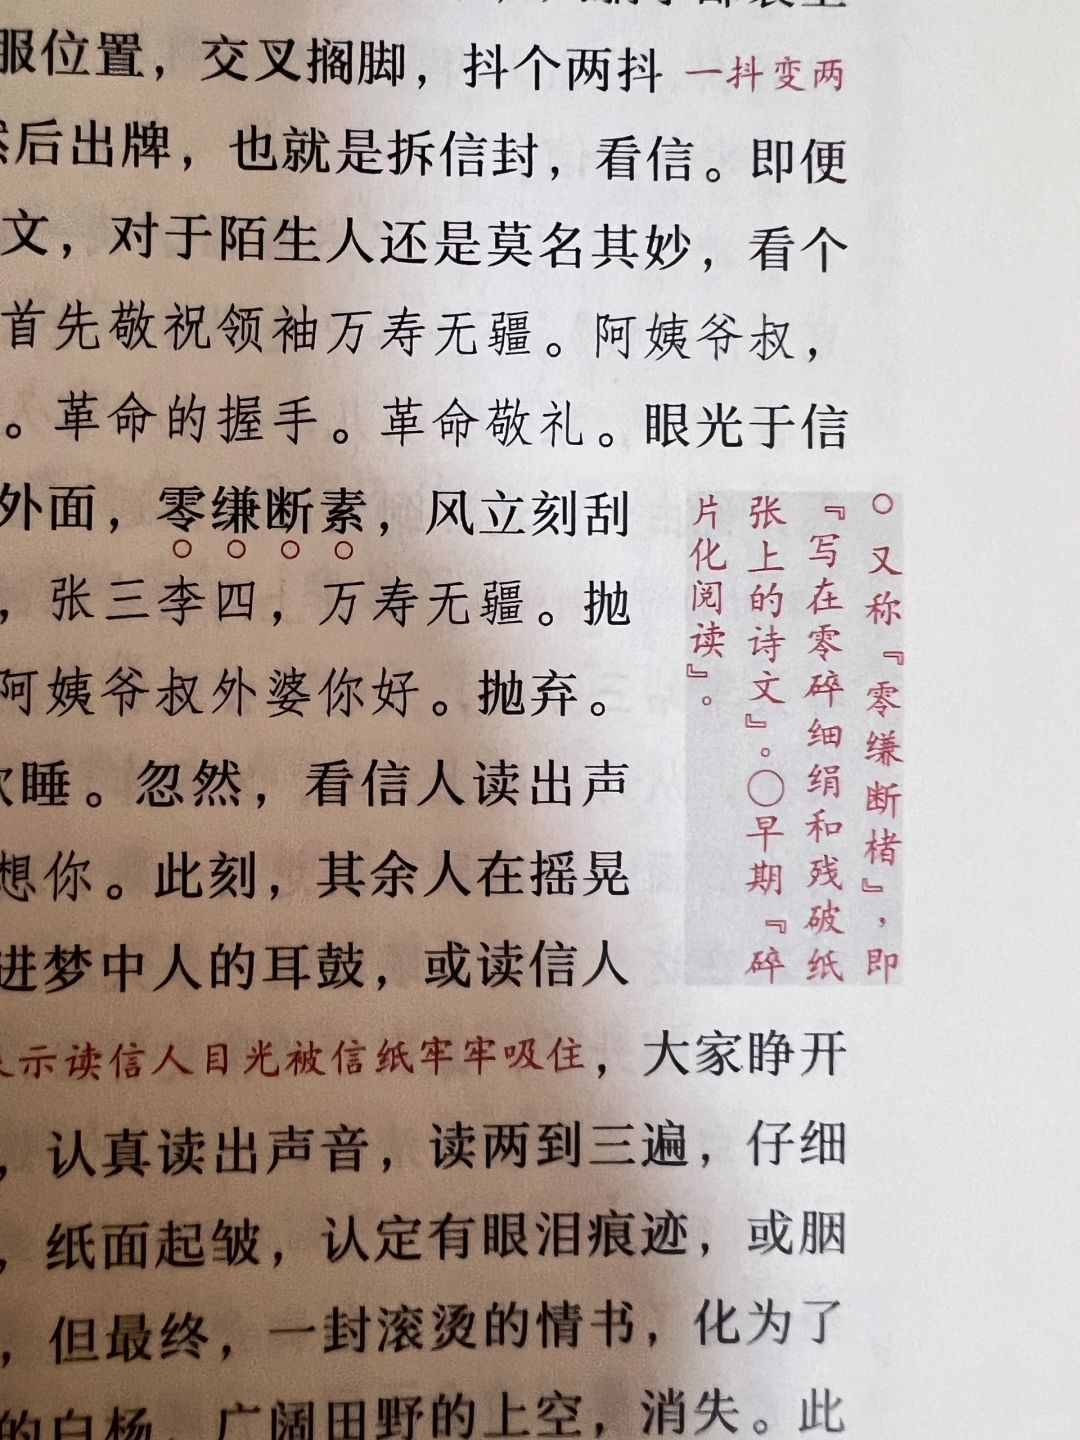 服位置，交叉搁脚，抖个两抖 一抖变两
然后出牌，也就是拆信封，看信。即便
文，对于陌生人还是莫名其妙，看个
首先敬祝领袖万寿无疆。阿姨爷叔，
。革命的握手。革命敬礼。眼光于信
外面，零缣断素，风立刻刮
，张三李四，万寿无疆。抛
阿姨爷叔外婆你好。抛弃。
睡。忽然，看信人读出声
想你。此刻，其余人在摇晃
进梦中人的耳鼓，或读信人
○又称『零缣断楮』，即
『写在零碎细绢和残破纸
张上的诗文』。○早期『碎
片化阅读』。
示读信人目光被信纸牢牢吸住，大家睁开
，认真读出声音，读两到三遍，仔细
，纸面起皱，认定有眼泪痕迹，或胭
，但最终，一封滚烫的情书，化为了
的白杨，广阔田野的上空，消失。此